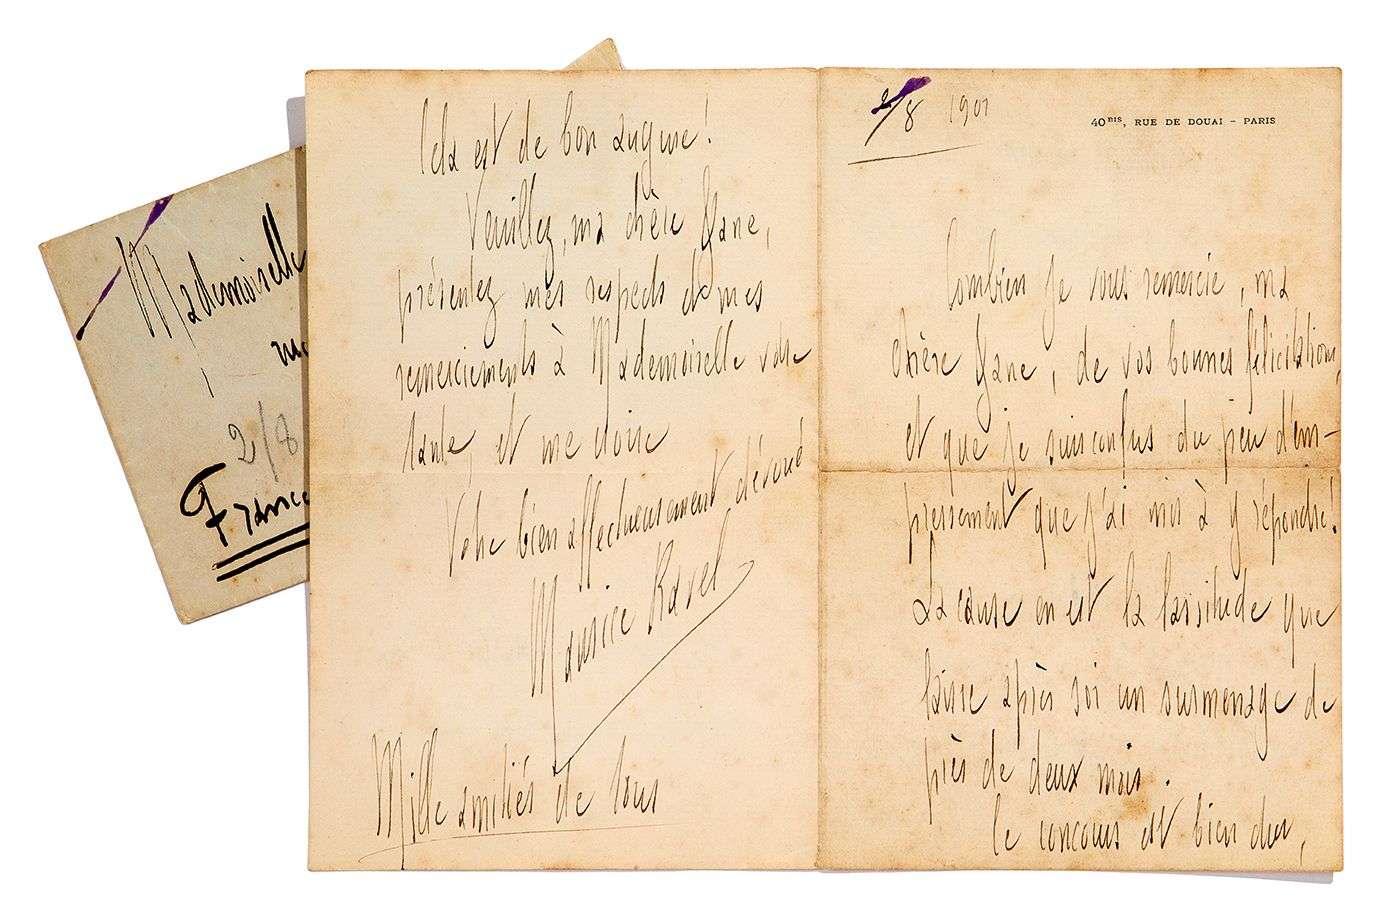 Mademoiselle
2/8
France
2/8 1901
40BIS, RUE DE DOUAI – PARIS
Combien je vous remercie, ma
chère Jane, de vos bonnes félicitations,
et que je suis confus du peu d'em-
pressement que j'ai mis à y répondre!
La cause en est la lassitude que
laisse après soi un surmenage de
près de deux mois.
Le concours est bien dur,
Cela est de bon augure!
Veuillez, ma chère Jane,
présentez mes respects et mes
remerciements à Mademoiselle votre
tante, et me croire
Votre bien affectueusement dévoué
Maurice Ravel
Mille amitiés de tous